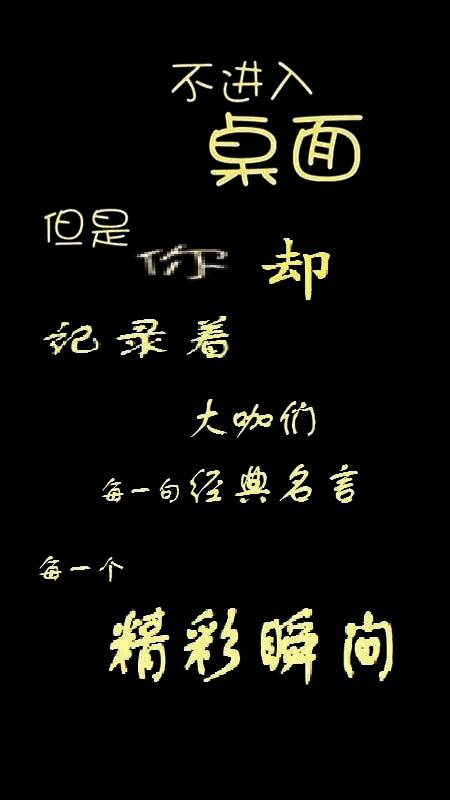 不进入
桌面
但是
你却
记录着
大咖们
每一句经典名言
每一个
精彩瞬间